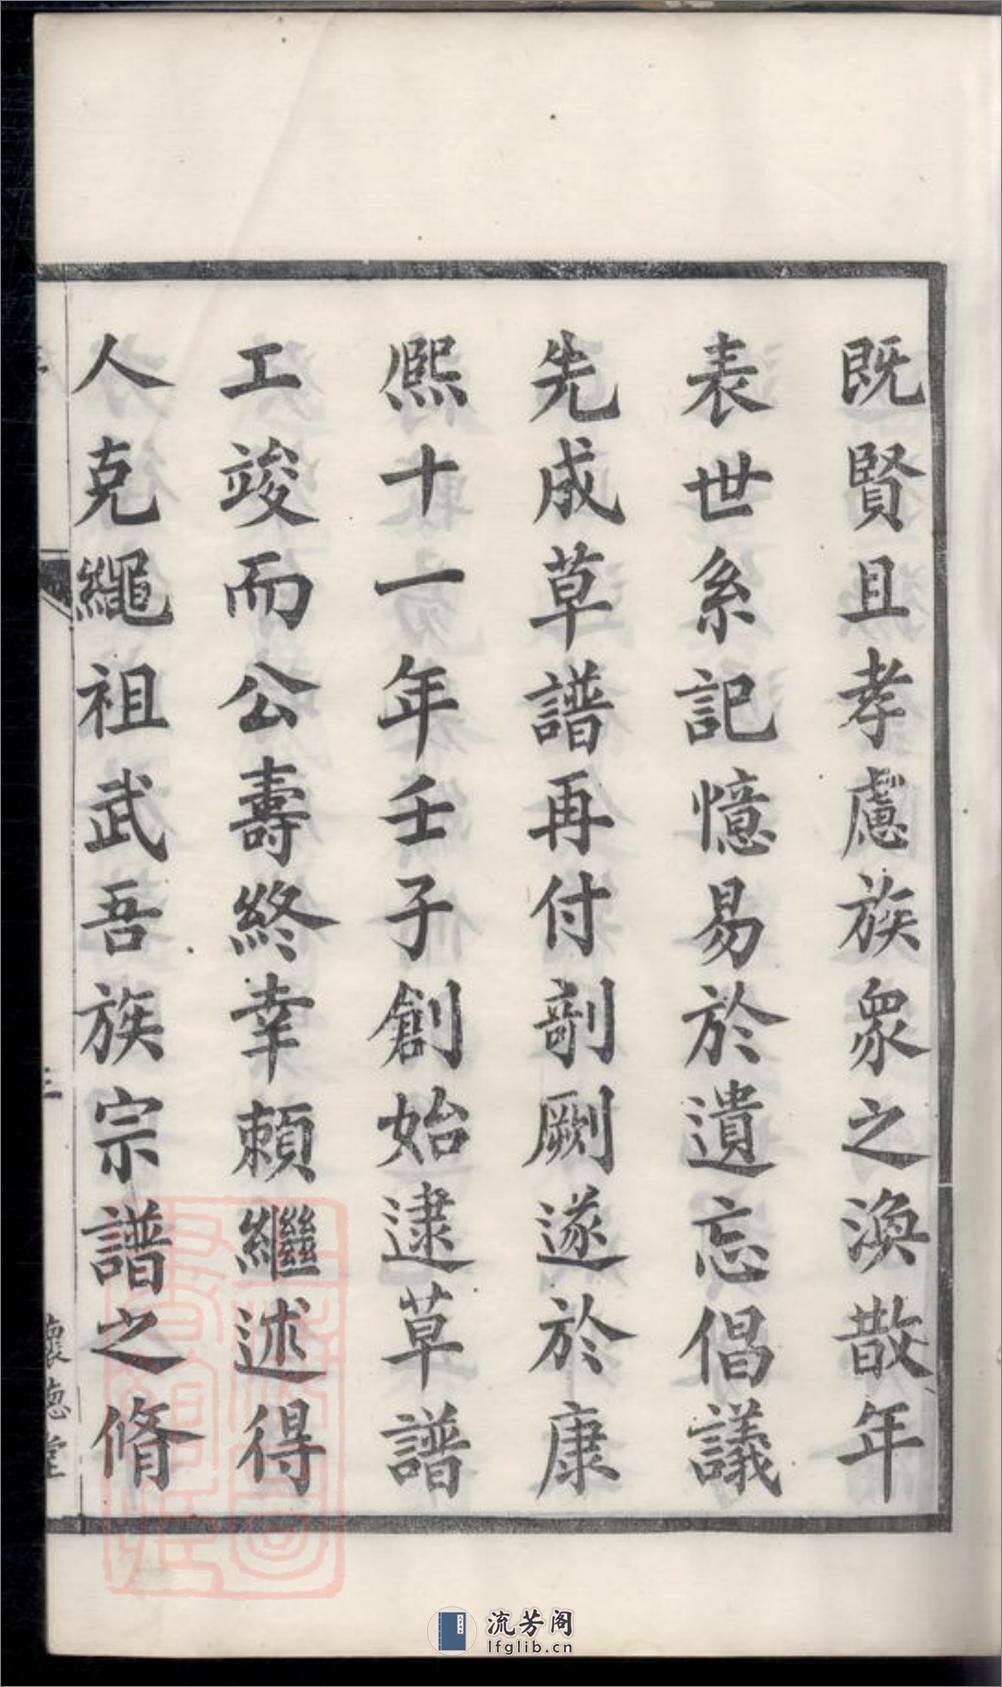 既賢且孝慮族衆之渙散年
表世系記憶易於遺忘倡議
先成草譜再付剞劂遂於康
熙十一年壬子創始逮草譜
工竣而公壽終幸賴繼述得
人克繩祖武吾族宗譜之脩
三
懷德堂
流芳阁
lfglib.cn